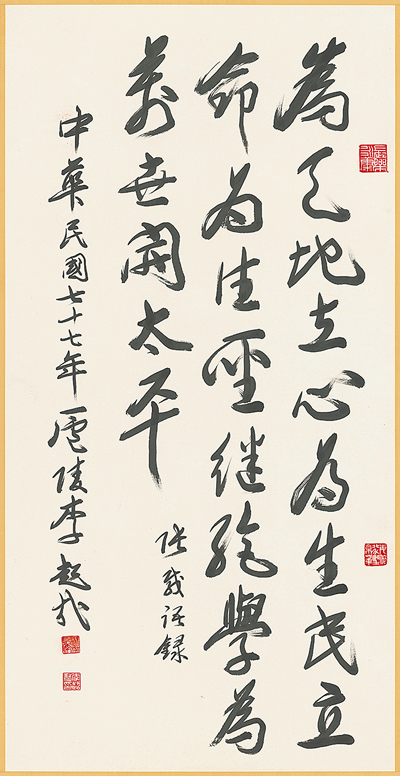 為天地立心為生民立
命為往聖继絕學為
萬世開太平
張載語錄
中華民國七十七年廬陵李超哉